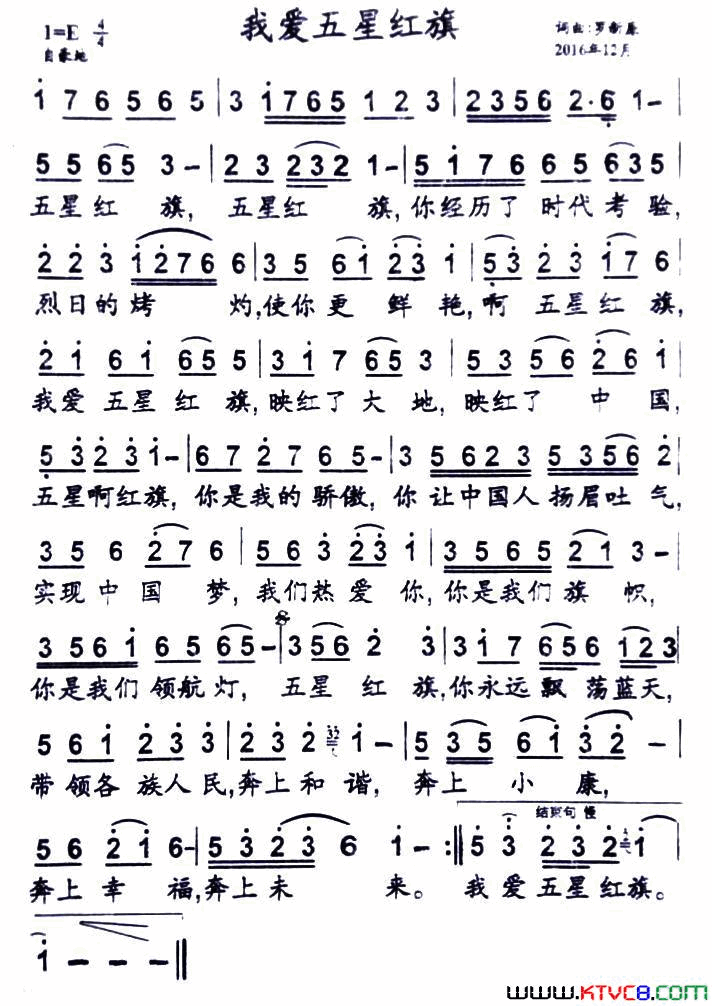 我爱五星红旗
1=E 4/4
词曲:罗新原
自豪地
2016年12月
1 7 6 5 6 5 | 3 1765 1 2 3 | 2356 2·6 1– |
5 5 65 3– | 2 3 232 1– | 5 1 7 6 65 635 |
五星红旗, 五星红旗,你经历了时代考验,
2 2 3 1276 6 | 3 5 61 23 1 | 53 2 3 17 6 |
烈日的烤灼,使你更鲜艳,啊五星红旗,
2 1 6 1 65 5 | 3 1 7 65 3 | 5 3 56 26 1 |
我爱五星红旗,映红了大地,映红了中国,
5 3 2 2 3 1– | 6 7 2 7 6 5– | 3 5 6 2 3 5 356 2 |
五星啊红旗,你是我的骄傲,你让中国人扬眉吐气,
3 5 6 27 6 | 5 6 3 23 1 | 3 5 6 5 21 3– |
实现中国梦,我们热爱你,你是我们旗帜,
3 5 6 1 6 5 65– | 356 2 3 | 3 1 7 656 123 |
你是我们领航灯, 五星红旗,你永远飘荡蓝天,
5 61 2 3 3 | 2 3 2 32 1– | 5 35 61 32– |
带领各族人民,奔上和谐,奔上小康,
结束句 慢
5 6 21 6– | 5 3 2 3 6 1– :‖ 5 3 2 3 2 1 |
奔上幸福,奔上未来。我爱五星红旗。
1 – – – ‖
www.KTVC8.com